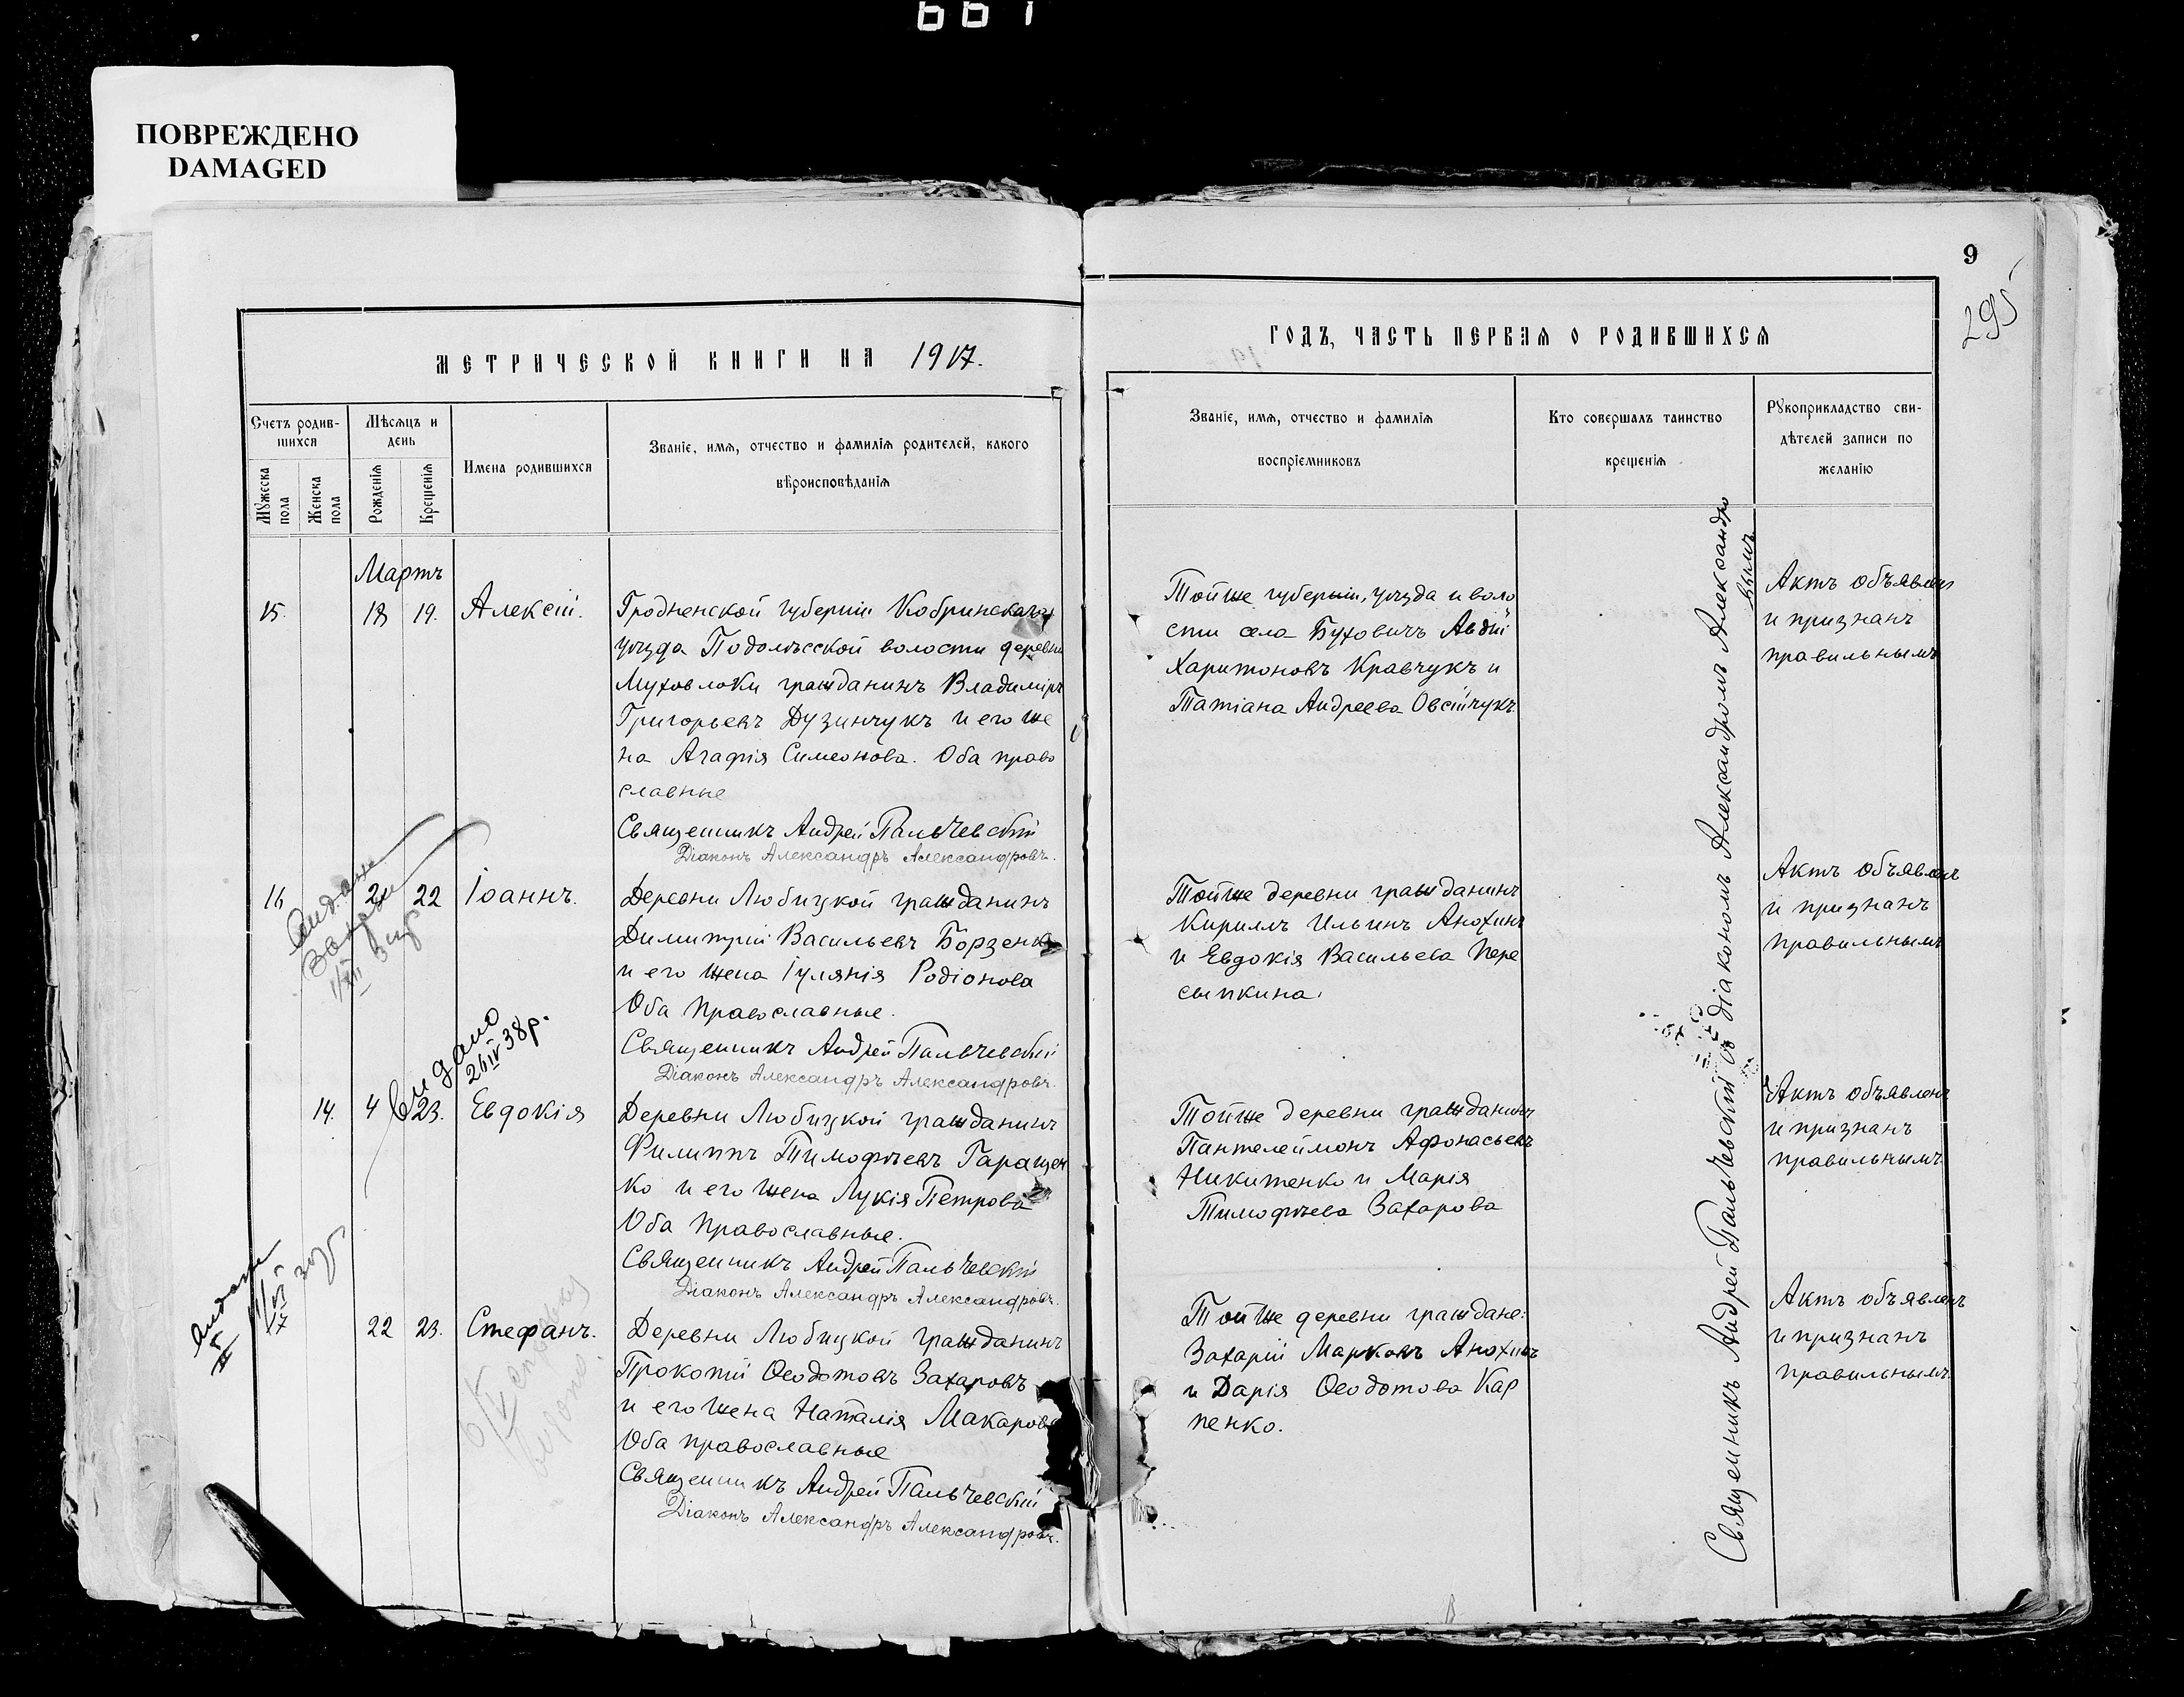 ПОВРЕЖДЕНО
DAMAGED
9
295
МЕТРИЧЕСКОЙ КНИГИ НА 1917.
Счетъ родив-
шихся
Мѣсяцъ и
день
Имена родившихся
Званіе, имя, отчество и фамилія родителей, какого
вѣроисповѣданія
Мужеска
пола
Женска
пола
Рожденія
Крещенія
Мартъ
15. 18 19. Алексій.
Гродненской губерніи Кобринскаго
уѣзда Подолѣсской волости деревни
Муховлоки гражданинъ Владиміръ
Григорьевъ Дузинчукъ и его же
на Агафія Симеонова. Оба право
славные
Священникъ Андрей Пальчевскій
Діаконъ Александръ Александровъ.
16 22 Іоаннъ.
Деревни Любицкой гражданинъ
Димитрій Васильевъ Борзенко
и его жена Іулянія Родіонова
Оба Православные.
Священникъ Андрей Пальчевскій
Діаконъ Александръ Александровъ.
видано
26 IV 38р.
14. 4 23. Евдокія
Деревни Любицкой гражданинъ
Филиппъ Тимофѣевъ Гаращен
ко и его жена Лукія Петрова
Оба Православные.
Священникъ Андрей Пальчевскій
Діаконъ Александръ Александровъ.
22 23. Стефанъ.
Деревни Любицкой гражданинъ
Прокопій Ѳеодотовъ Захаровъ
и его жена Наталія Макарова
Оба православные
Священникъ Андрей Пальчевскій
Діаконъ Александръ Александровъ.
ГОДЪ, ЧАСТЬ ПЕРВАЯ О РОДИВШИХСЯ
Званіе, имя, отчество и фамилія
воспріемниковъ
Кто совершалъ таинство
крещенія
Рукоприкладство сви-
дѣтелей записи по
желанію
Тойже губерніи, уѣзда и воло
сти села Буховичъ Авдій
Харитоновъ Кравчукъ и
Татіана Андреева Овсійчукъ
Актъ объявленъ
и признанъ
правильнымъ
Тойже деревни гражданинъ
Кириллъ Ильинъ Анохинъ
и Евдокія Васильева Пере
сыпкина.
Актъ объявленъ
и признанъ
правильнымъ
Тойже деревни гражданинъ
Пантелеймонъ Афонасьевъ
Никитенко и Марія
Тимофѣева Захарова
Актъ объявленъ
и признанъ
правильнымъ
Тойже деревни граждане:
Захарій Марковъ Анохинъ
и Дарія Ѳеодотова Кар
пенко.
Актъ объявленъ
и признанъ
правильнымъ.
Священникъ Андрей Пальчевскій съ діакономъ Александромъ Александро
вымъ